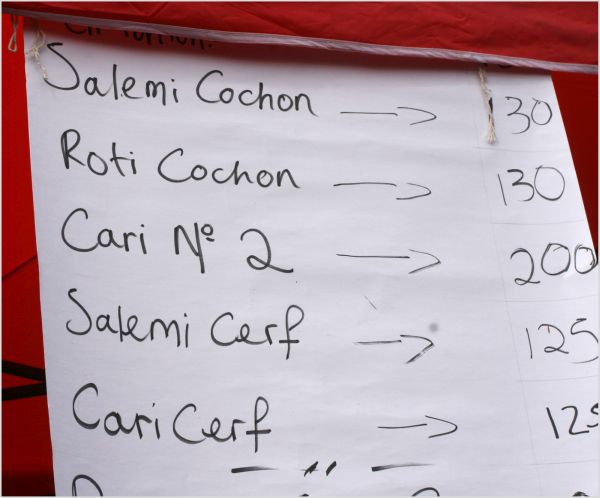 Salemi Cochon → 130
Roti Cochon → 130
Cari Nº 2 → 200
Salemi Cerf → 125
Cari Cerf → 125